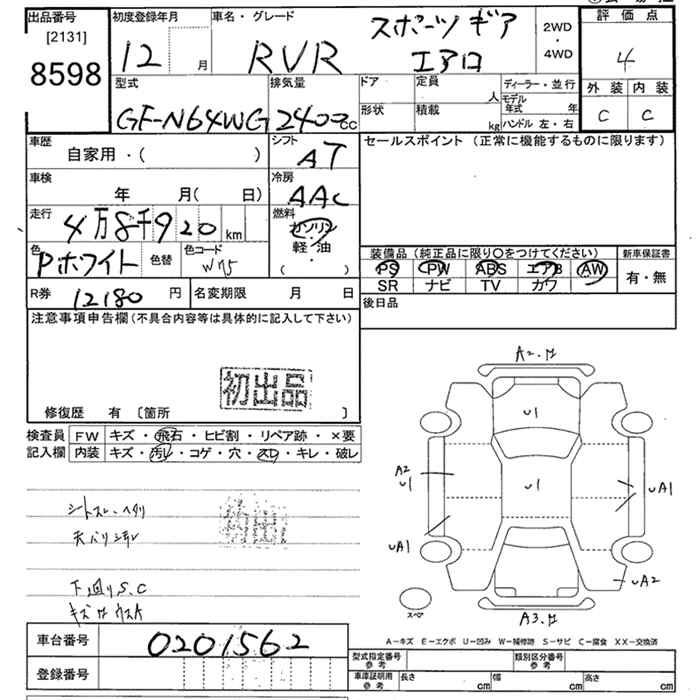 出品番号
[2131]
8598
初度登録年月
12 月
車名・グレード
RVR スポーツギア エアロ
2WD
・
4WD
評価点
4
外装 内装
C C
型式
GF-N64WG
排気量
2400cc
ドア
定員
人
形状
積載
kg
ディーラー・並行
モデル年式 年
ハンドル 左・右
車歴
自家用・( )
シフト
AT
セールスポイント (正常に機能するものに限ります)
車検
年 月( 日)
冷房
AAC
走行
4万8千920km
燃料
ガソリン
軽・油
( )
色
Pホワイト
色替
色コード
W75
装備品 (純正品に限り○をつけてください)
PS PW ABS エアB AW
SR ナビ TV カワ
新車保証書
有・無
R券
12180 円
名変期限 月 日
後日品
注意事項申告欄 (不具合内容等は具体的に記入して下さい)
初出品
修復歴 有 〔箇所 〕
検査員
記入欄
FW キズ・飛石・ヒビ割・リペア跡・×要
内装 キズ・汚レ・コゲ・穴・スレ・キレ・破レ
シートスレ・ヘタリ
下廻りS.C
A2.
U1
A2
U1
U1
UA1
UA1
UA2
A3.
スペア
A－キズ E－エクボ U－凹み W－補修跡 S－サビ C－腐食 XX－交換済
車台番号
0201562
登録番号
型式指定番号
参考
類別区分番号
参考
車庫証明用
参考
長さ cm
幅 cm
高さ cm